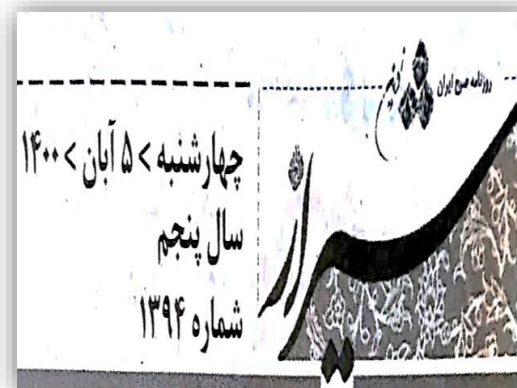 روزنامه صبح ایران
شیراز
چهارشنبه > ۵ آبان > ۱۴۰۰
سال پنجم
شماره ۱۳۹۴